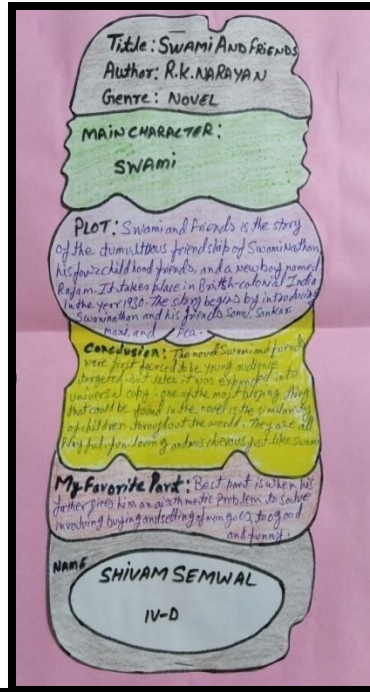 Title: SWAMI AND FRIENDS
Author: R.K. NARAYAN
Genre: NOVEL
MAIN CHARACTER:
SWAMI
PLOT: Swami and friends is the story
of the tumultuous friendship of Swaminathan
his four childhood friends, and a new boy named
Rajam. It takes place in British-colonial India
in the year 1930. The story begins by introducing
Swaminathan and his friends Somu, Sankar
Mani, and Pea.
Conclusion: The novel Swami and friends
were first focused to be young audience
targeted but later it was expanded into
universal copy. one of the most thing
that could be found in the novel is the similarity
of children throughout the world. They are all
Playful, fun-loving and mischievous just like Swami
My Favorite Part: Best part is when his
father gives him an arithmetic Problem to solve
involving buying and selling of mangoes, too good
and funny.
NAME
SHIVAM SEMWAL
IV-D